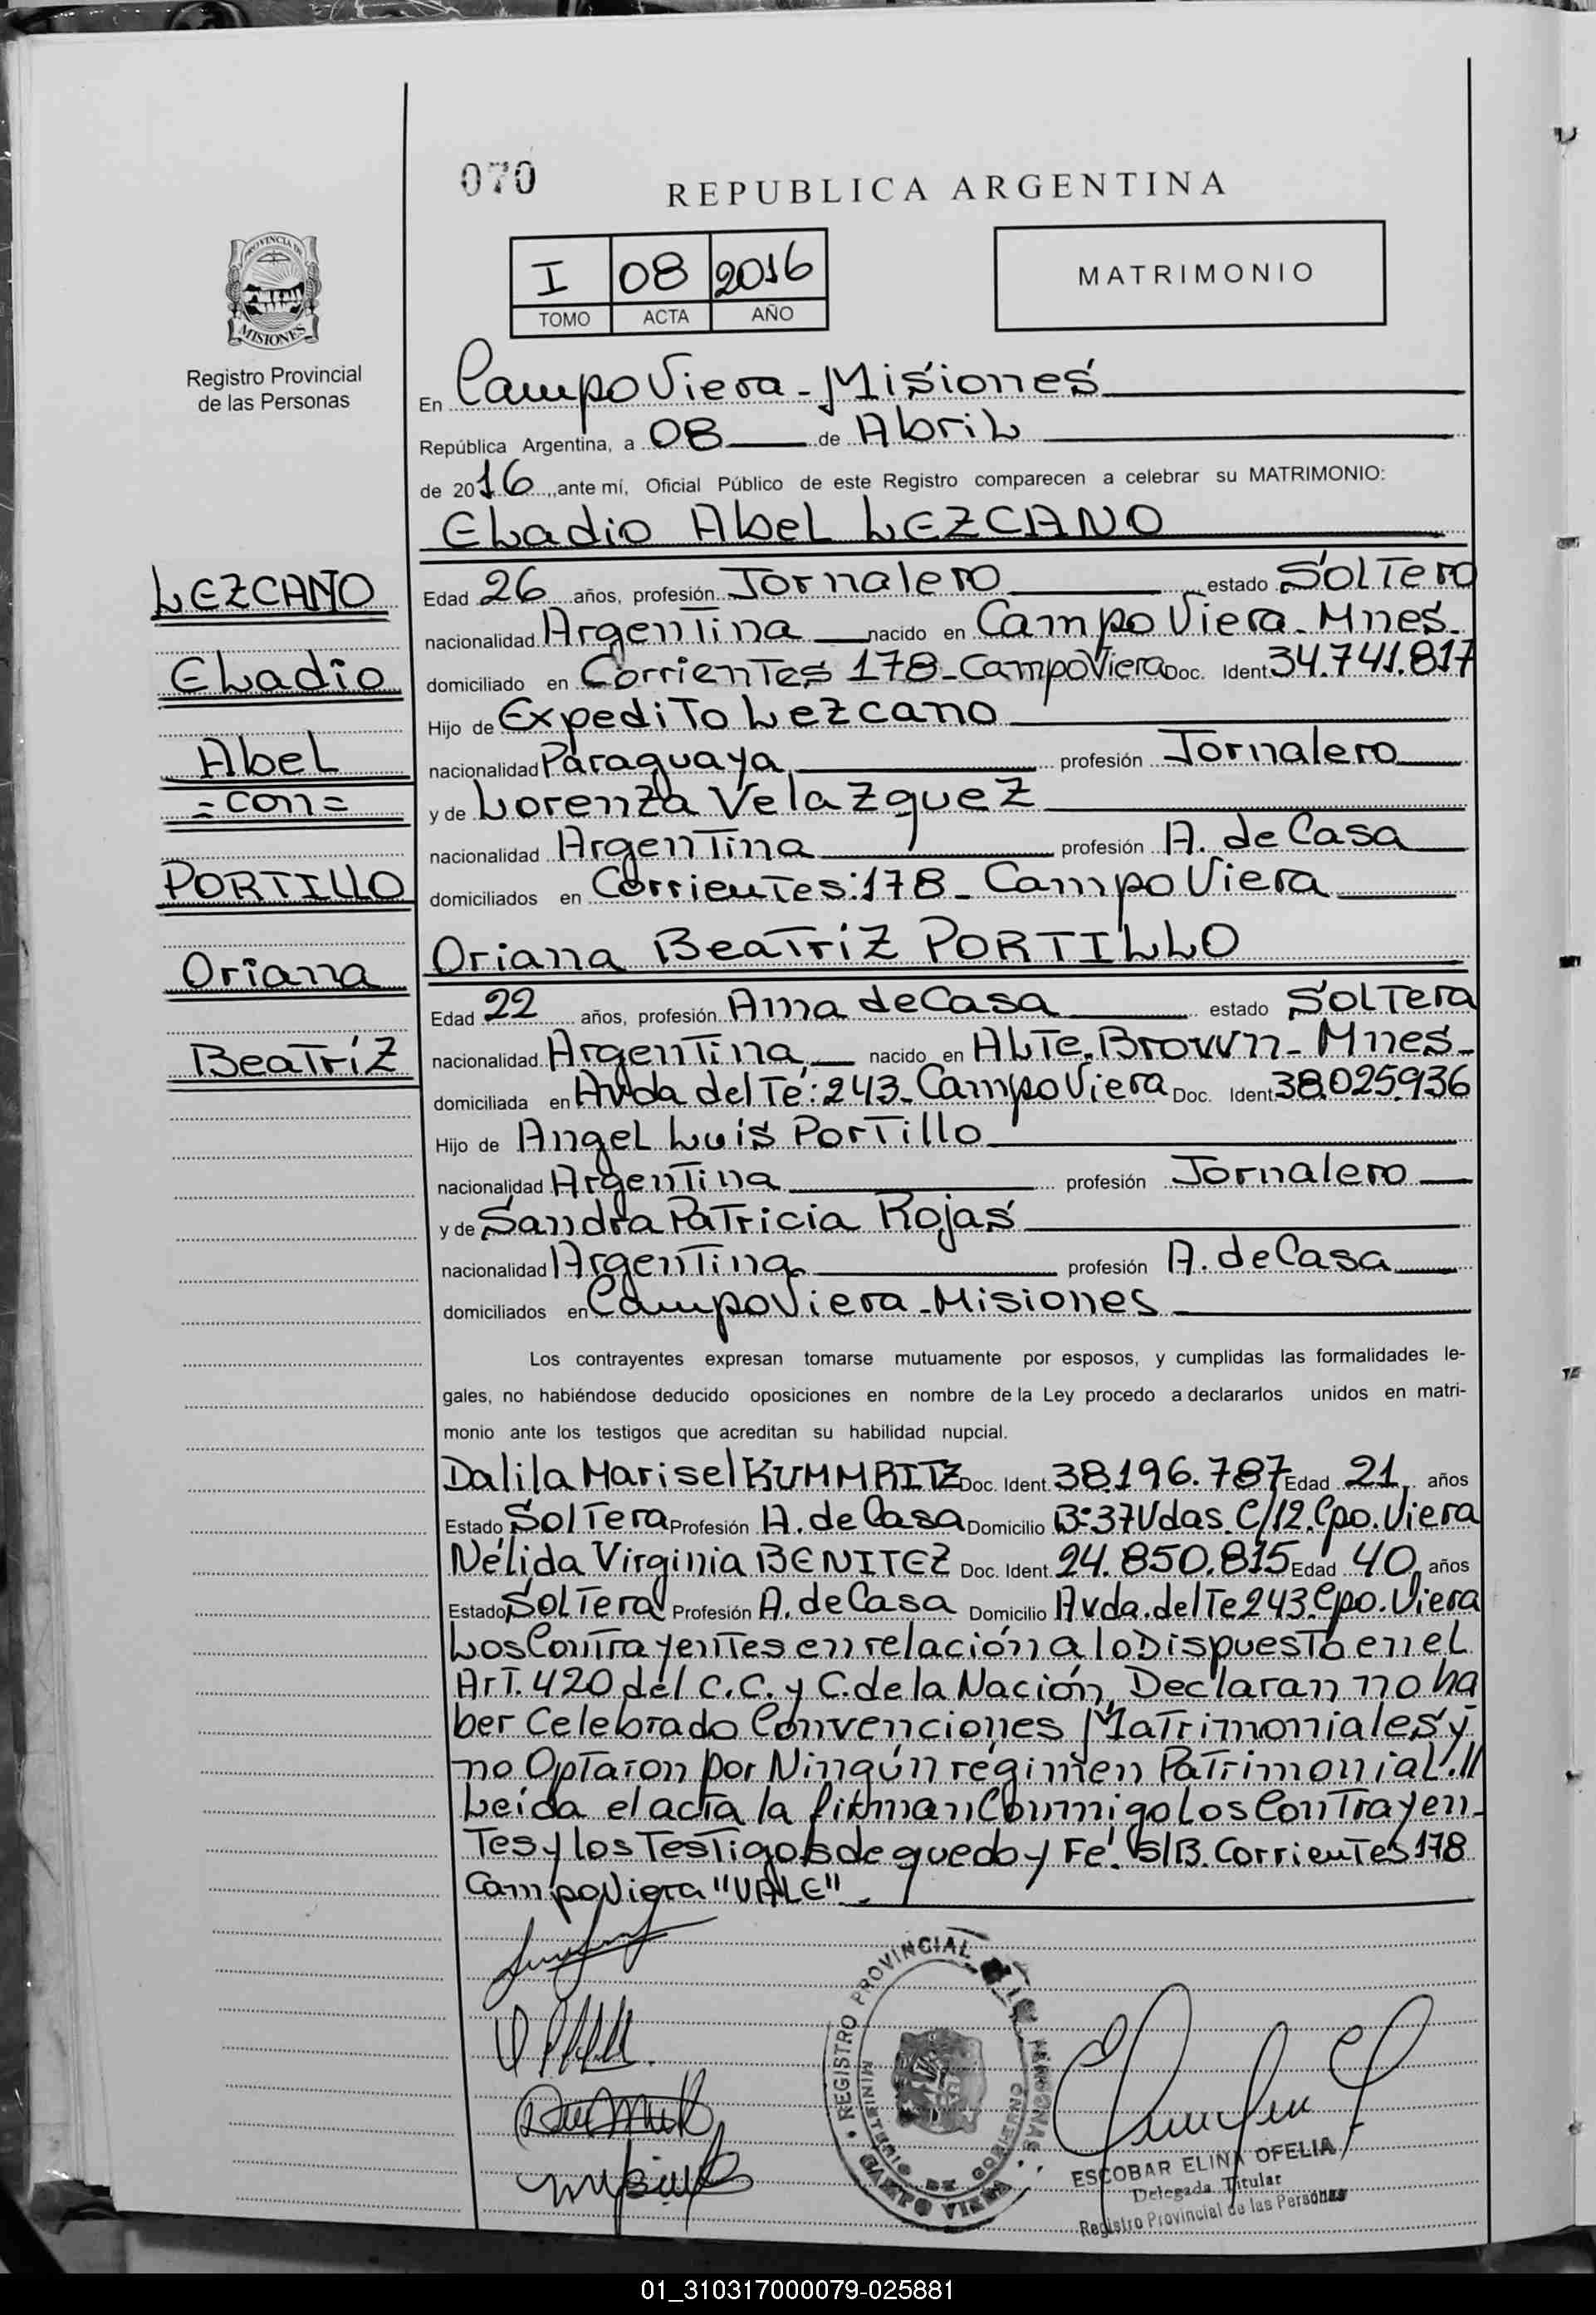 070
REPUBLICA ARGENTINA
PROVINCIA DE
MISIONES
Registro Provincial
de las Personas
I 08 2016
TOMO ACTA AÑO
MATRIMONIO
En Campo Viera - Misiones
República Argentina, a 08 de Abril
de 2016, ante mí, Oficial Público de este Registro comparecen a celebrar su MATRIMONIO:
Eladio Abel LEZCANO
LEZCANO
Eladio
Abel
= con =
PORTILLO
Oriana
Beatriz
Edad 26 años, profesión Jornalero estado Soltero
nacionalidad Argentina nacido en Campo Viera - Mnes -
domiciliado en Corrientes 178 - Campo Viera Doc. Ident. 34.741.817
Hijo de Expedito Lezcano
nacionalidad Paraguaya profesión Jornalero
y de Lorenza Velazquez
nacionalidad Argentina profesión A. de Casa
domiciliados en Corrientes: 178 - Campo Viera
Oriana Beatriz PORTILLO
Edad 22 años, profesión Ama de Casa estado Soltera
nacionalidad Argentina, nacido en Alte. Brown - Mnes -
domiciliada en Avda del Té: 243 - Campo Viera Doc. Ident. 38.025.936
Hijo de Angel Luis Portillo
nacionalidad Argentina profesión Jornalero
y de Sandra Patricia Rojas
nacionalidad Argentina profesión A. de Casa
domiciliados en Campo Viera - Misiones
Los contrayentes expresan tomarse mutuamente por esposos, y cumplidas las formalidades le-
gales, no habiéndose deducido oposiciones en nombre de la Ley procedo a declararlos unidos en matri-
monio ante los testigos que acreditan su habilidad nupcial.
Dalila Marisel KUMMRITZ Doc. Ident. 38.196.787 Edad 21 años
Estado Soltera Profesión A. de Casa Domicilio B: 37 Vdas. C/12. Cpo. Viera
Nélida Virginia BENITEZ Doc. Ident. 24.850.815 Edad 40 años
Estado Soltera Profesión A. de Casa Domicilio Avda. del Te 243. Cpo. Viera
Los Contrayentes en relación a lo Dispuesto en el
Art. 420 del C.C. y C. de la Nación, Declaran no ha
ber Celebrado Convenciones Matrimoniales y
no Optaron por Ningún régimen Patrimonial. //
Leída el acta la firman Conmigo Los Contrayen-
tes y los Testigos de que doy Fe. S/B. Corrientes 178
Campo Viera "VALE" -
REGISTRO PROVINCIAL DE LAS PERSONAS
MINISTERIO DE GOBIERNO
CAMPO VIERA
ESCOBAR ELINA OFELIA
Delegada Titular
Registro Provincial de las Personas
01_310317000079-025881